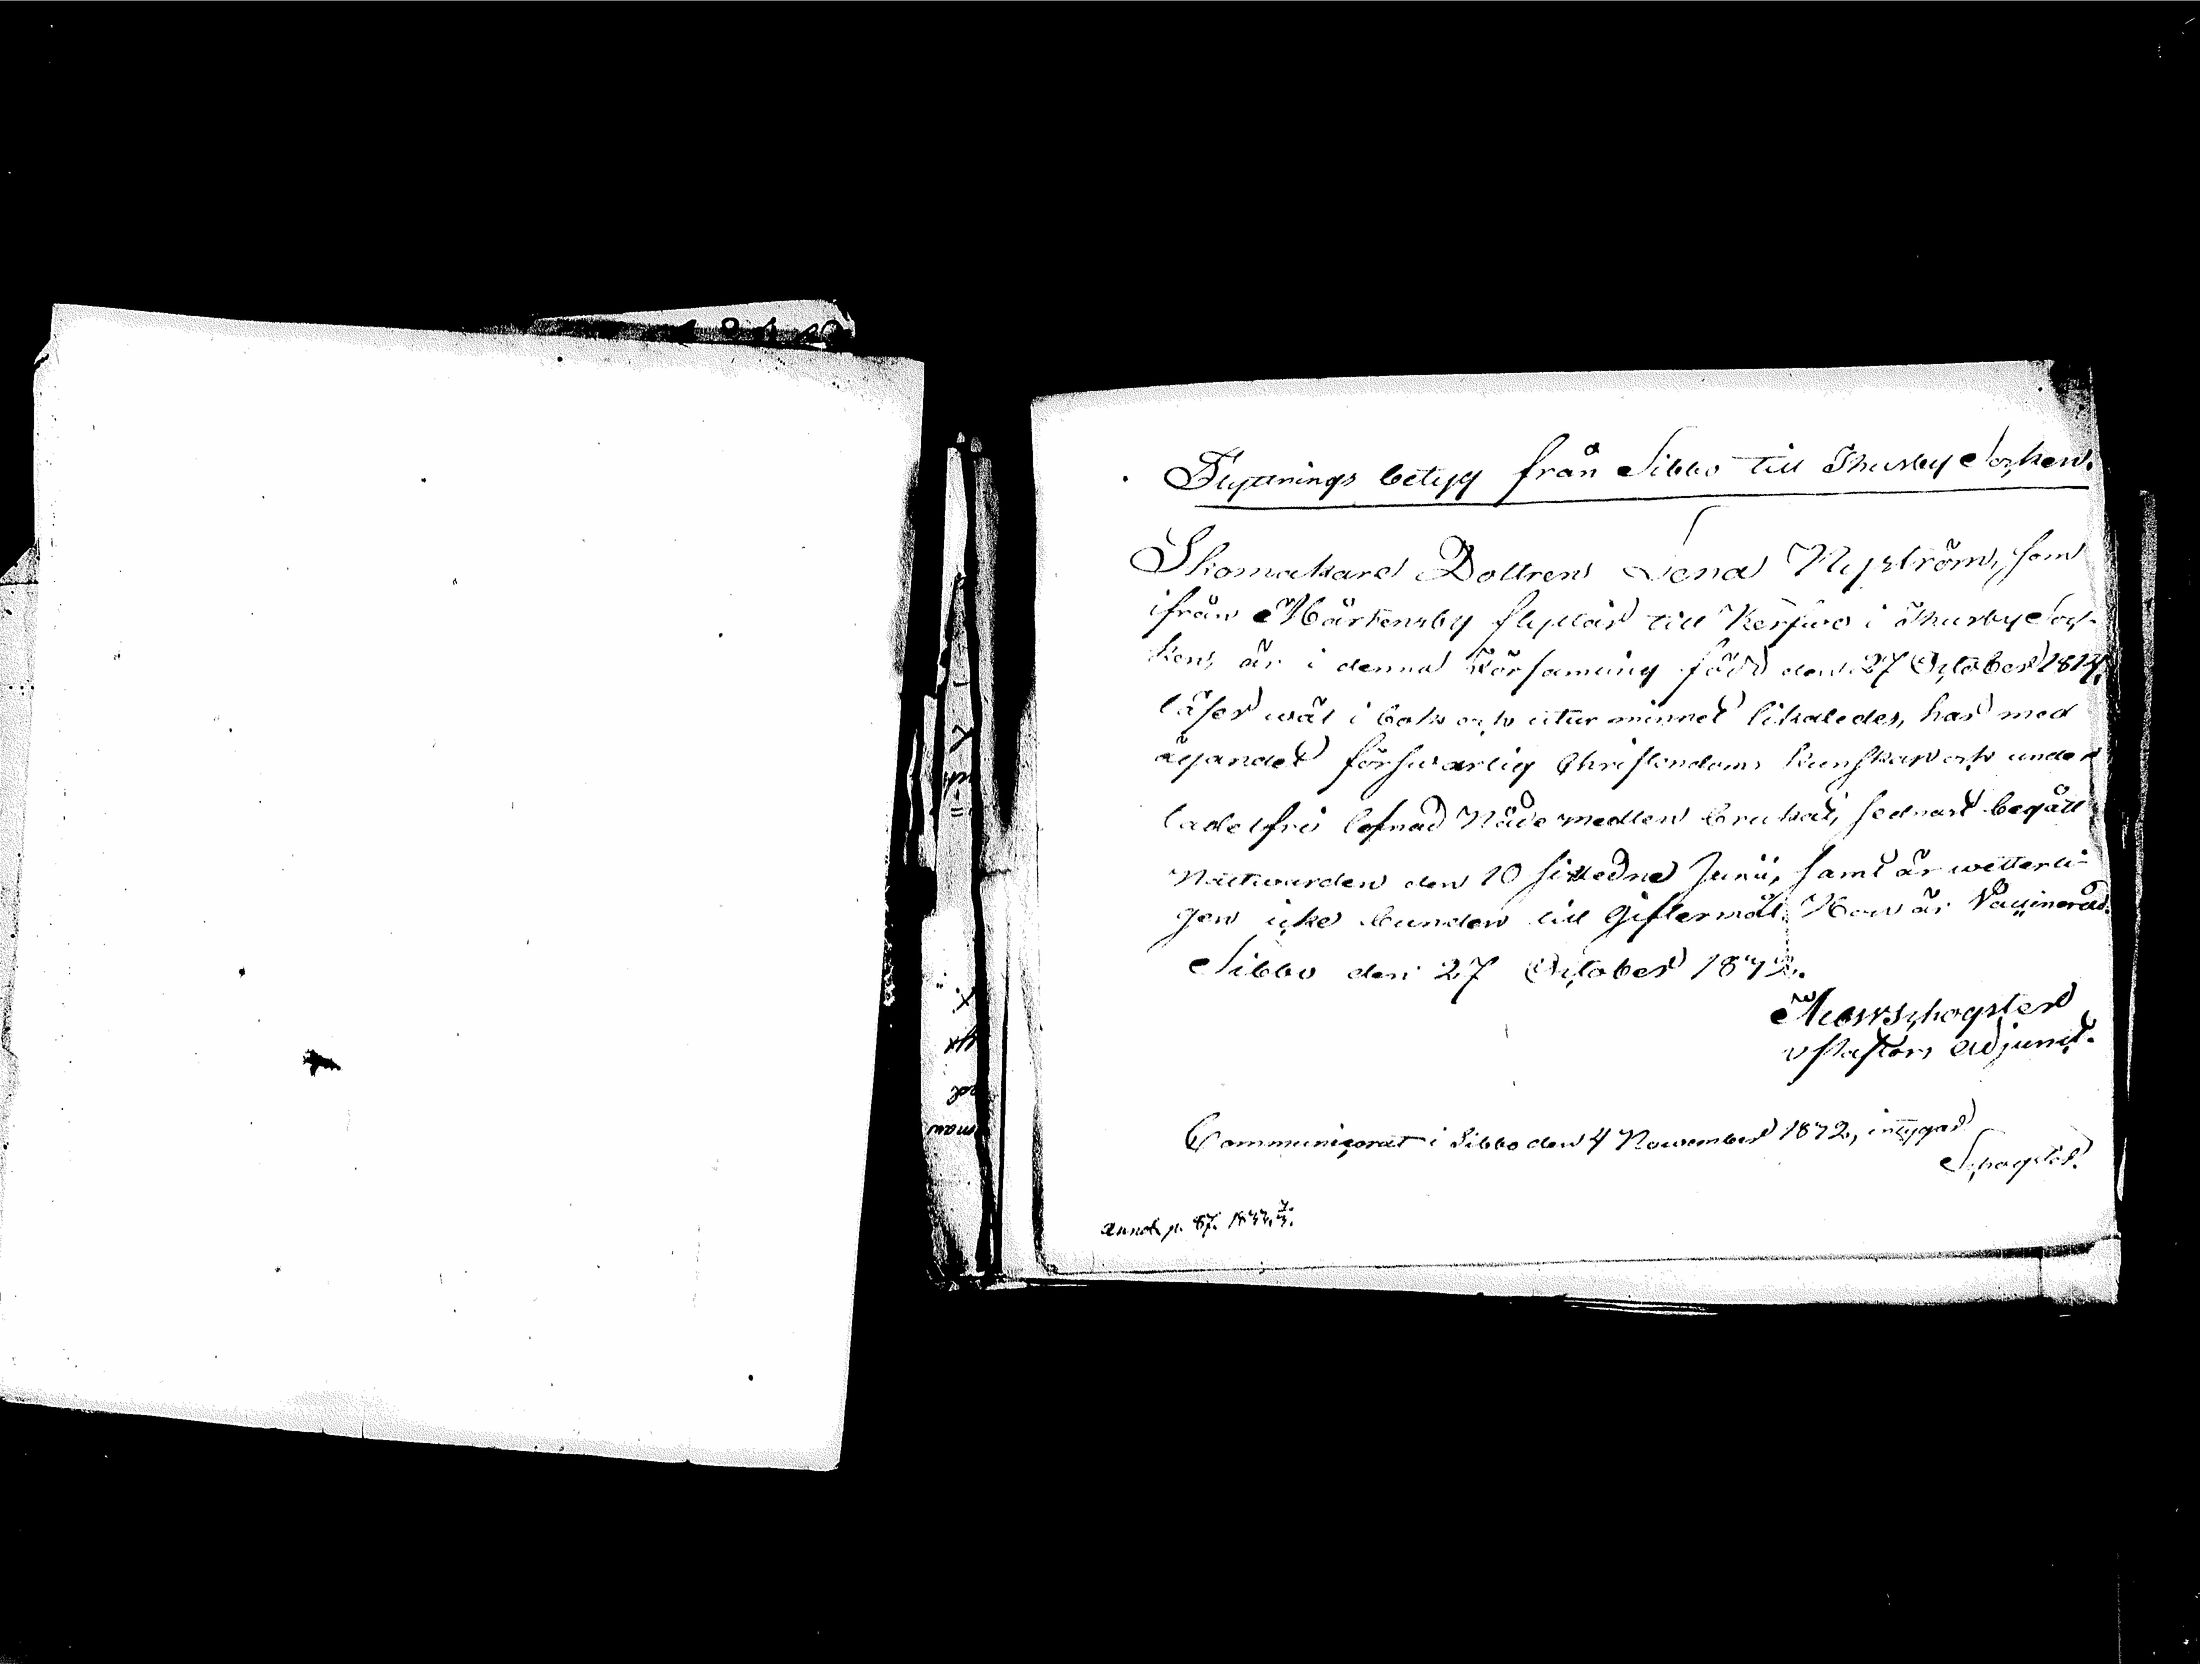 Flyttnings betyg från Sibbo till Thusby Socken.
Skomakare Dottren Lena Nyström, som
ifrån Mårtensby flyttar till Kerfwo i Thusby Soc-
ken, är i denna Församling född den 27 October 1814,
läser wäl i bok och utur minnet likaledes, har med
ägandet förswarlig Christendoms kunskap och under
ladelfri lefnad Nådemedlen brukat, sednast begått
Nattwarden den 10 sistledne Junii, samt är wetterli-
gen icke bunden till Giftermål. Hon är Vaccinerad.
Sibbo den 27 October 1832.
v Pastors Adjunct.
Communicerat i Sibbo den 4 November 1832, intygar
annot p. 87.